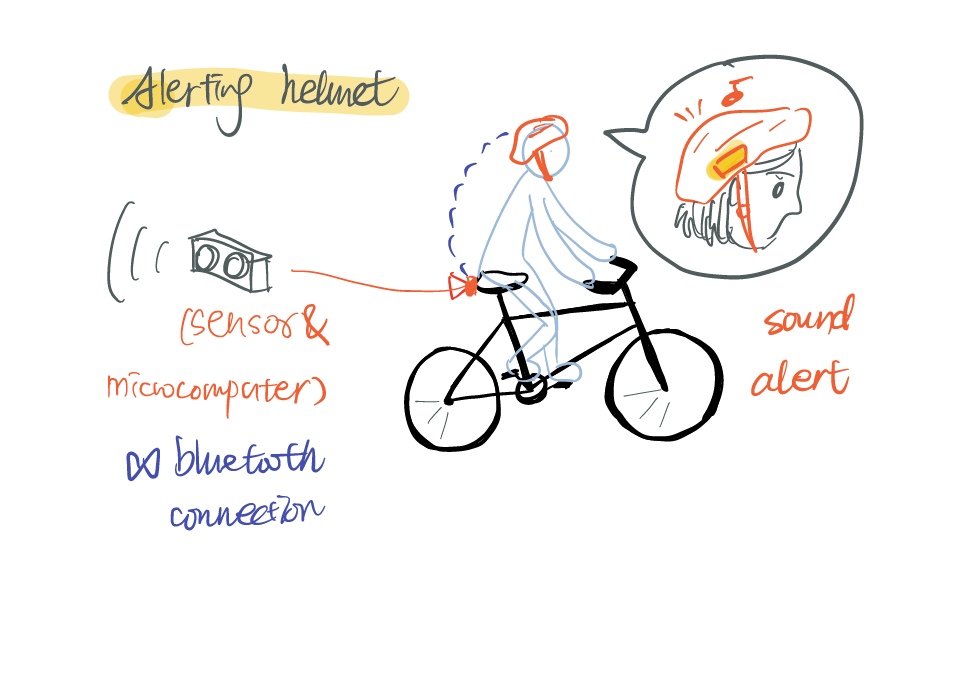 Alerting helmet
(sensor &
microcomputer)
bluetooth
connection
sound
alert